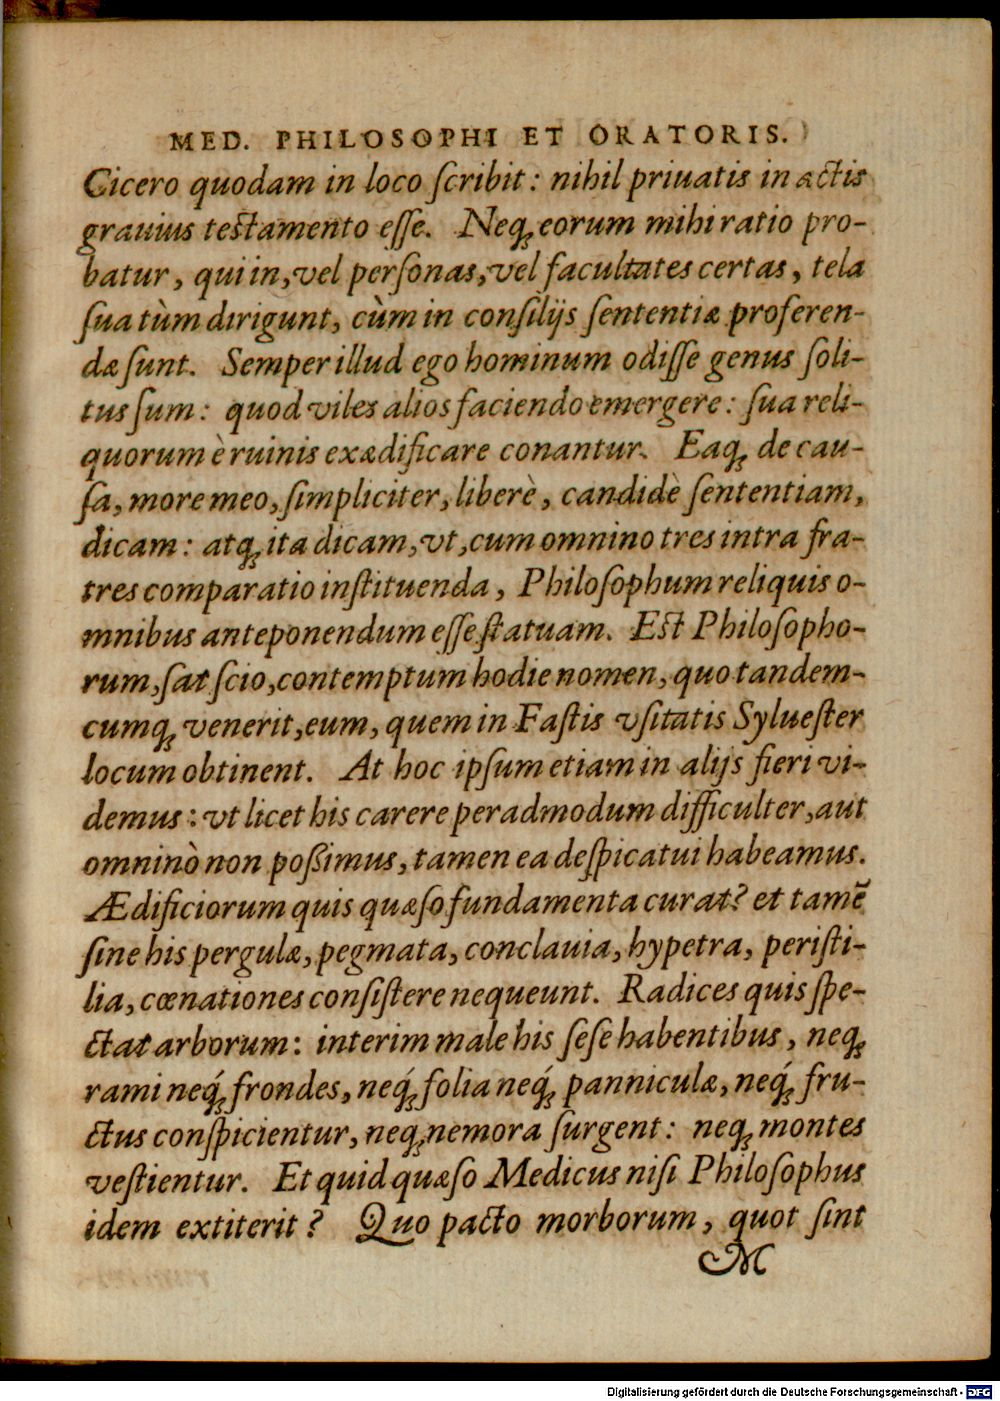 MED. PHILOSOPHI ET ORATORIS.
Cicero quodam in loco ſcribit: nihil priuatis in actis
grauius teſtamento eſſe. Neq; eorum mihi ratio pro-
batur, qui in, vel perſonas, vel facultates certas, tela
ſua tùm dirigunt, cùm in conſilijs ſententiæ proferen-
dæ ſunt. Semper illud ego hominum odiſſe genus ſoli-
tus ſum: quod viles alios faciendo emergere: ſua reli-
quorum è ruinis exædificare conantur. Eaq; de cau-
ſa, more meo, ſimpliciter, liberè, candidè ſententiam,
dicam: atq; ita dicam, vt, cum omnino tres intra fra-
tres comparatio inſtituenda, Philoſophum reliquis o-
mnibus anteponendum eſſe ſtatuam. Eſt Philoſopho-
rum, ſat ſcio, contemptum hodie nomen, quo tandem-
cumq; venerit, eum, quem in Faſtis vſitatis Sylueſter
locum obtinent. At hoc ipſum etiam in alijs fieri vi-
demus: vt licet his carere peradmodum difficulter, aut
omninò non poßimus, tamen ea deſpicatui habeamus.
Ædificiorum quis quæſo fundamenta curat? et tamē
ſine his pergulæ, pegmata, conclauia, hypetra, periſti-
lia, cœnationes conſiſtere nequeunt. Radices quis ſpe-
ctat arborum: interim male his ſeſe habentibus, neq;
rami neq́; frondes, neq́; folia neq́; panniculæ, neq́; fru-
ctus conſpicientur, neq; nemora ſurgent: neq; montes
veſtientur. Et quid quæſo Medicus niſi Philoſophus
idem extiterit? Quo pacto morborum, quot ſint
M
Digitalisierung gefördert durch die Deutsche Forschungsgemeinschaft - DFG